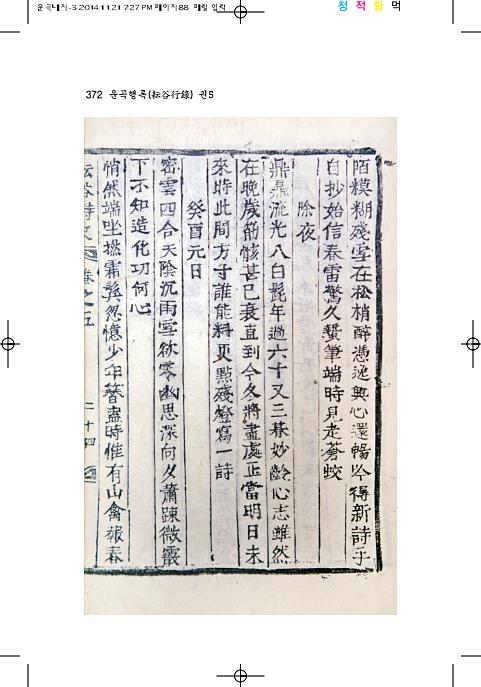 운곡내지-3 2014.11.21 7:27 PM 페이지88 입력
청 적 황 먹
372 운곡행록(耘谷行錄) 권5
陌糢糊殘雪在松梢醉憑逸興心還暢吟得新詩手
自抄始信春雷驚久蟄筆端時見走蒼蛟
除夜
鼎鼎流光入白髭年過六十又三朞妙齡心志雖然
在晩歲筋骸甚已衰直到今冬將盡處正當明日未
來時此間方寸誰能料更點殘燈寫一詩
癸酉元日
密雲四合天陰沉雨雪欲零幽思深向夕蕭踈微霰
下不知造化功何心
悄然端坐撚霜鬂忽憶少年簪盍時惟有山禽報春
耘谷詩史 卷之五 二十四